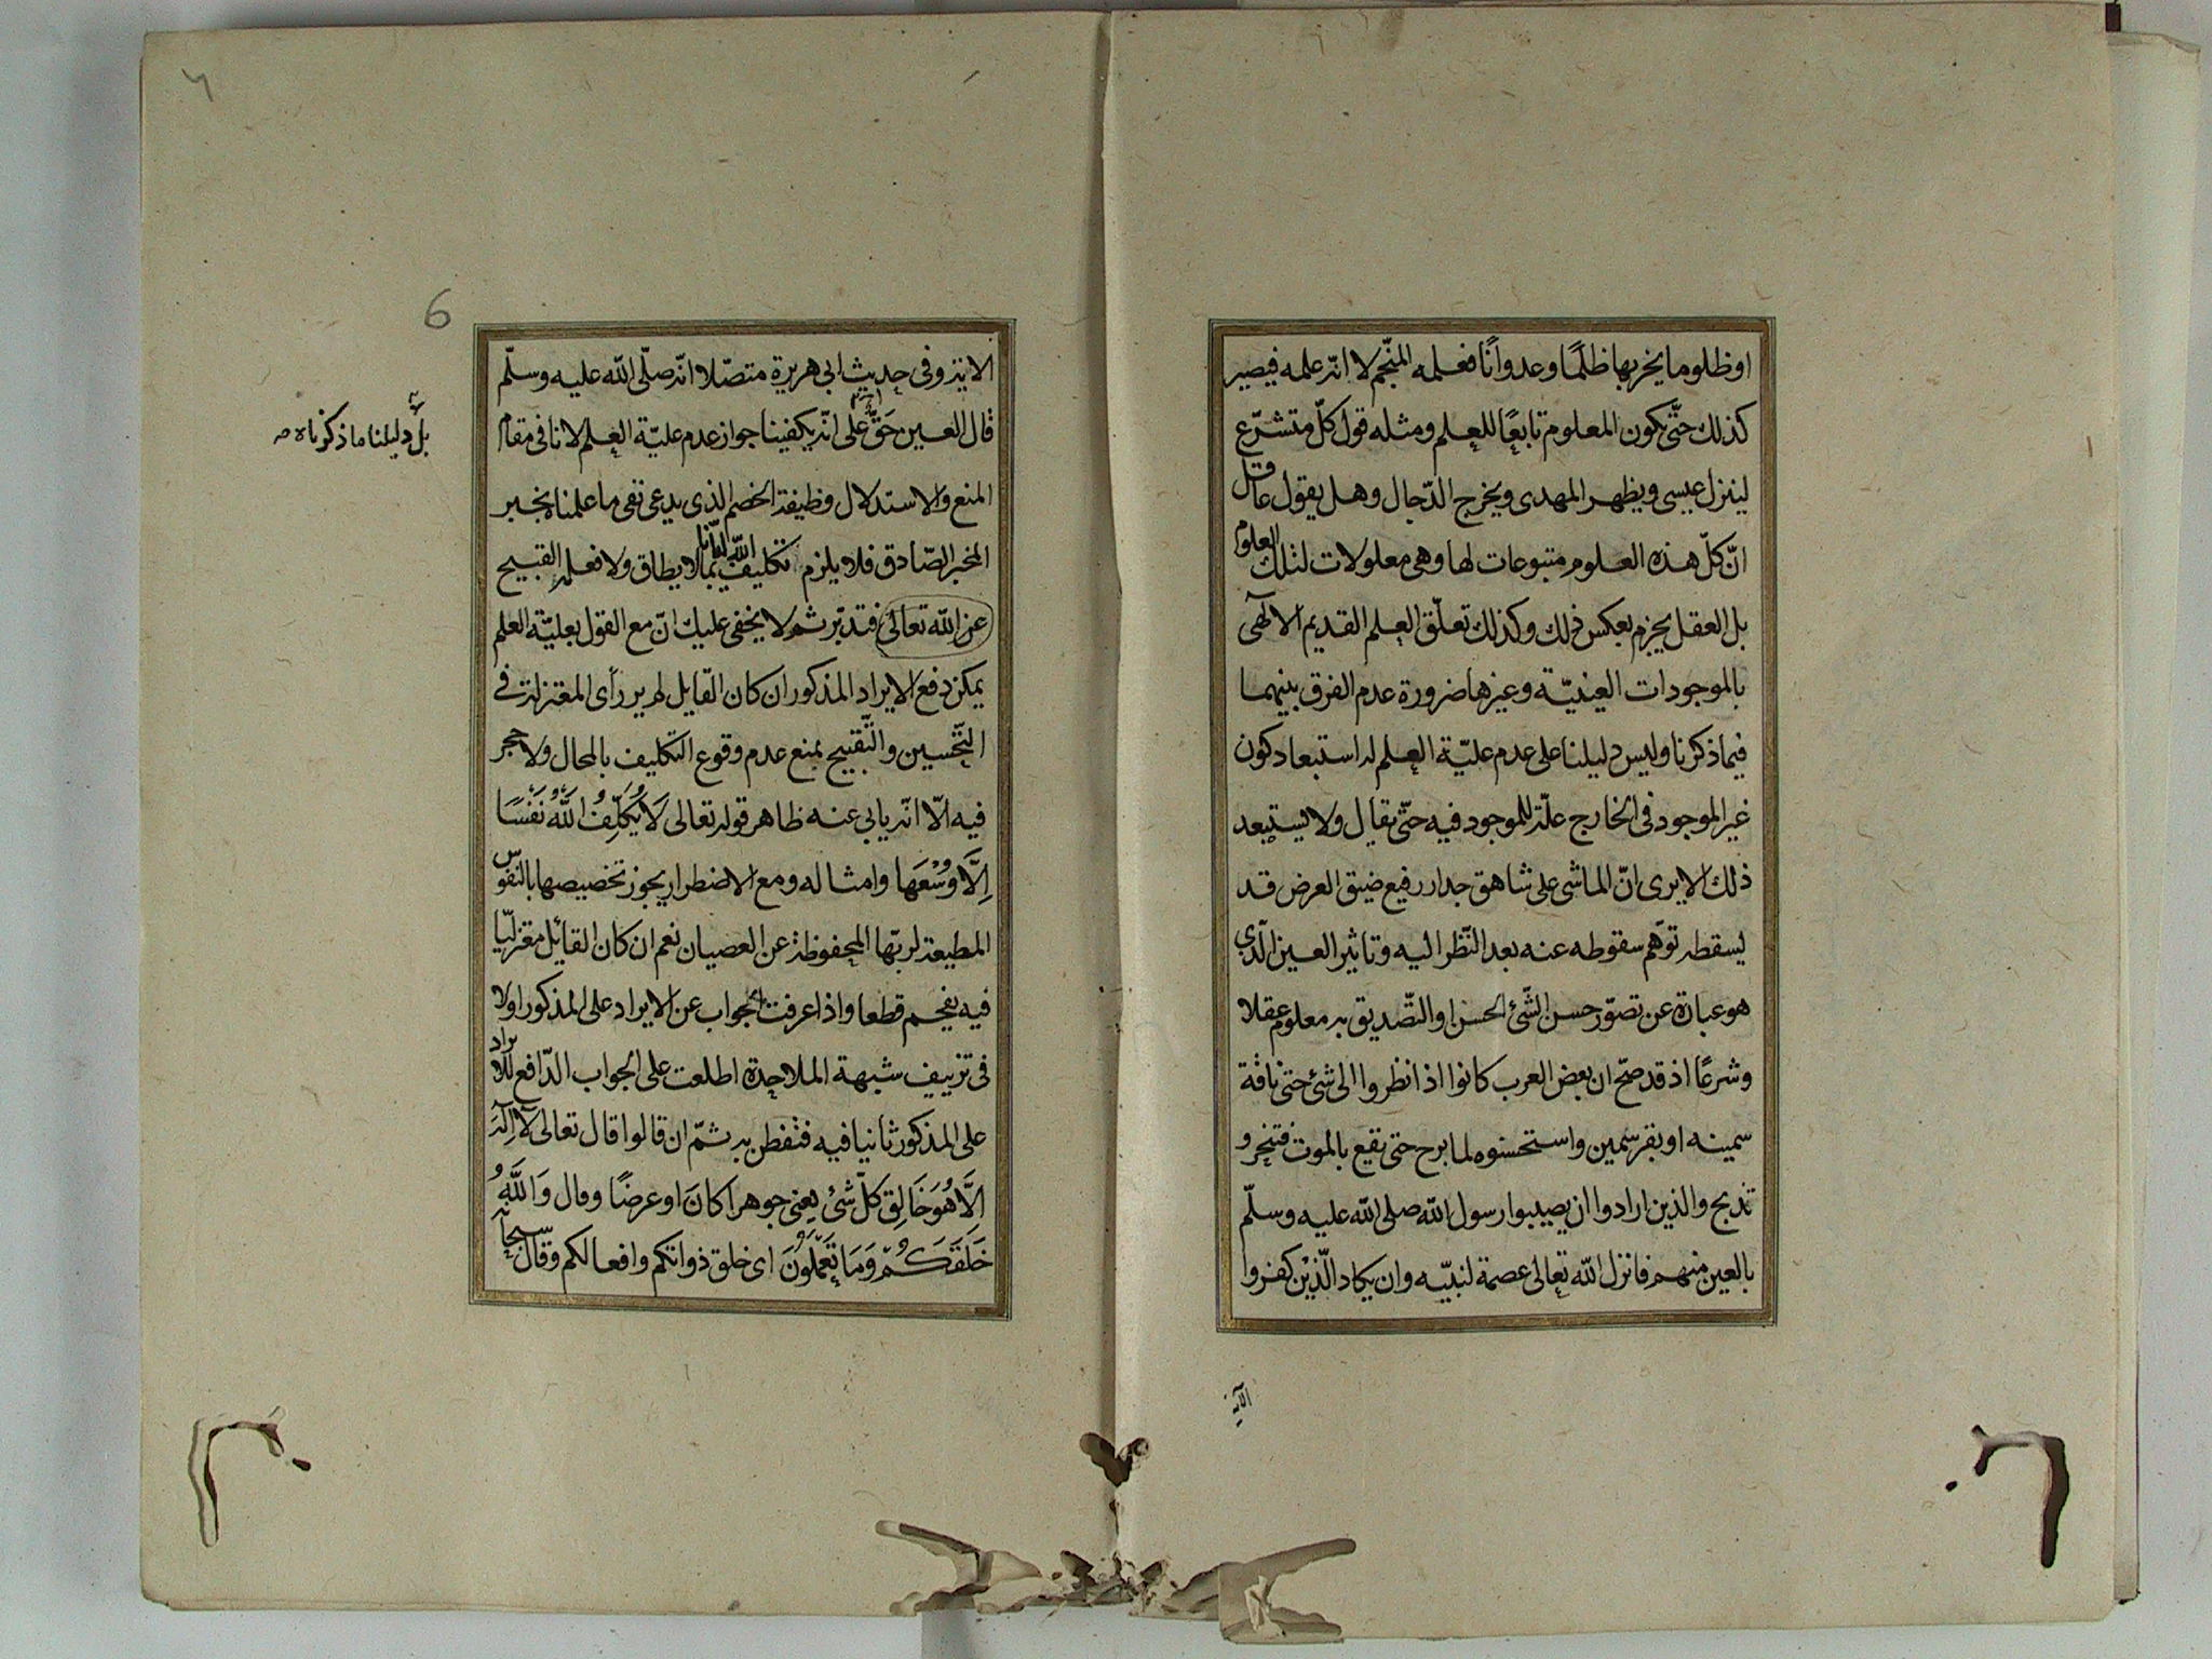 اوظلوما يخربها ظلمًا وعدوانًا فعلمه المنجّم لا انّه علمه فيصير
كذلك حتّى يكون المعلوم تابعًا للعلم ومثله قول كلّ متشرّع
لينزل عيسى ويظهر المهدى ويخرج الدّجال وهل يقول عاقل
انّ كلّ هذه العلوم متبوعات لها وهى معلولات لتلك العلوم
بل العقل يجزم بعكس ذلك وكذلك تعلّق العلم القديم الآلهى
بالموجودات العينيّة وغيرها ضرورة عدم الفرق بينهما
فيما ذكرنا وليس دليلنا على عدم عليّة العلم له استبعاد كون
غير الموجود فى الخارج علّة للموجود فيه حتّى يقال ولا يستبعد
ذلك الا يرى انّ الماشى على شاهق جدار رفيع ضيق العرض قد
يسقطه توهّم سقوطه عنه بعد النّظر اليه وتاثير العين الّذى
هو عبارة عن تصوّر حسن الشّئ الحسن او التّصديق به معلوم عقلا
وشرعًا اذ قد صحّ ان بعض العرب كانوا اذا نظروا الى شئ حتى ناقة
سمينه او بقر سمين واستحسنوه لما برح حتى تقع بالموت فتنخر و
تذبح والذين ارادوا ان يصيبوا رسول الله صلى الله عليه وسلّم
بالعين منهم فانزل الله تعالى عصمة لنبيّه وان يكاد الّذين كفروا
الآية
6
الاية وفى حديث ابى هريرة متصّلا انّه صلّى الله عليه وسلّم
قال العين حَقّ على انّه يكفينا جواز عدم عليّة العلم لانا فى مقام
المنع والاستدلال وظيفة الخصم الذى يدعى نفى ما علمنا بخبر
المخبر الصّادق فلا يلزم تكليف الله ايّانا بما لا يطاق ولا فعله القبيح
عن الله تعالى فتدبّر ثم لا يخفى عليك انّ مع القول بعليّة العلم
يمكن دفع الايراد المذكور ان كان القايل لم ير رأى المعتزلة فى
التّحسين والتّقبيح بمنع عدم وقوع التكليف بالمحال ولا حجر
فيه الّا انّه يابى عنه ظاهر قوله تعالى لَا يُكَلِّفُ اللَّهُ نَفْسًا
اِلَّا وُسْعَهَا وامثاله ومع الاضطرار يجوز تخصيصها بالنفوس
المطيعة لربّها المحفوظة عن العصيان نعم ان كان القائل معتزليّا
فيه يفحم قطعا واذا عرفت الجواب عن الايراد على المذكور اولا
فى تزييف شبهة الملاحدة اطلعت على الجواب الدّافع للايراد
على المذكور ثانيا فيه فتفطن به ثمّ ان قالوا قال تعالى لَا اِلَهَ
اِلَّا هُوَ خَالِق كلّ شئ يعنى جوهرا كان او عرضًا وقال وَاللَّهُ
خَلَقَكُمْ وَمَا تَعْمَلُونَ اى خلق ذواتكم وافعالكم وقال سبحانه
بل دليلنا ما ذكرناه صح